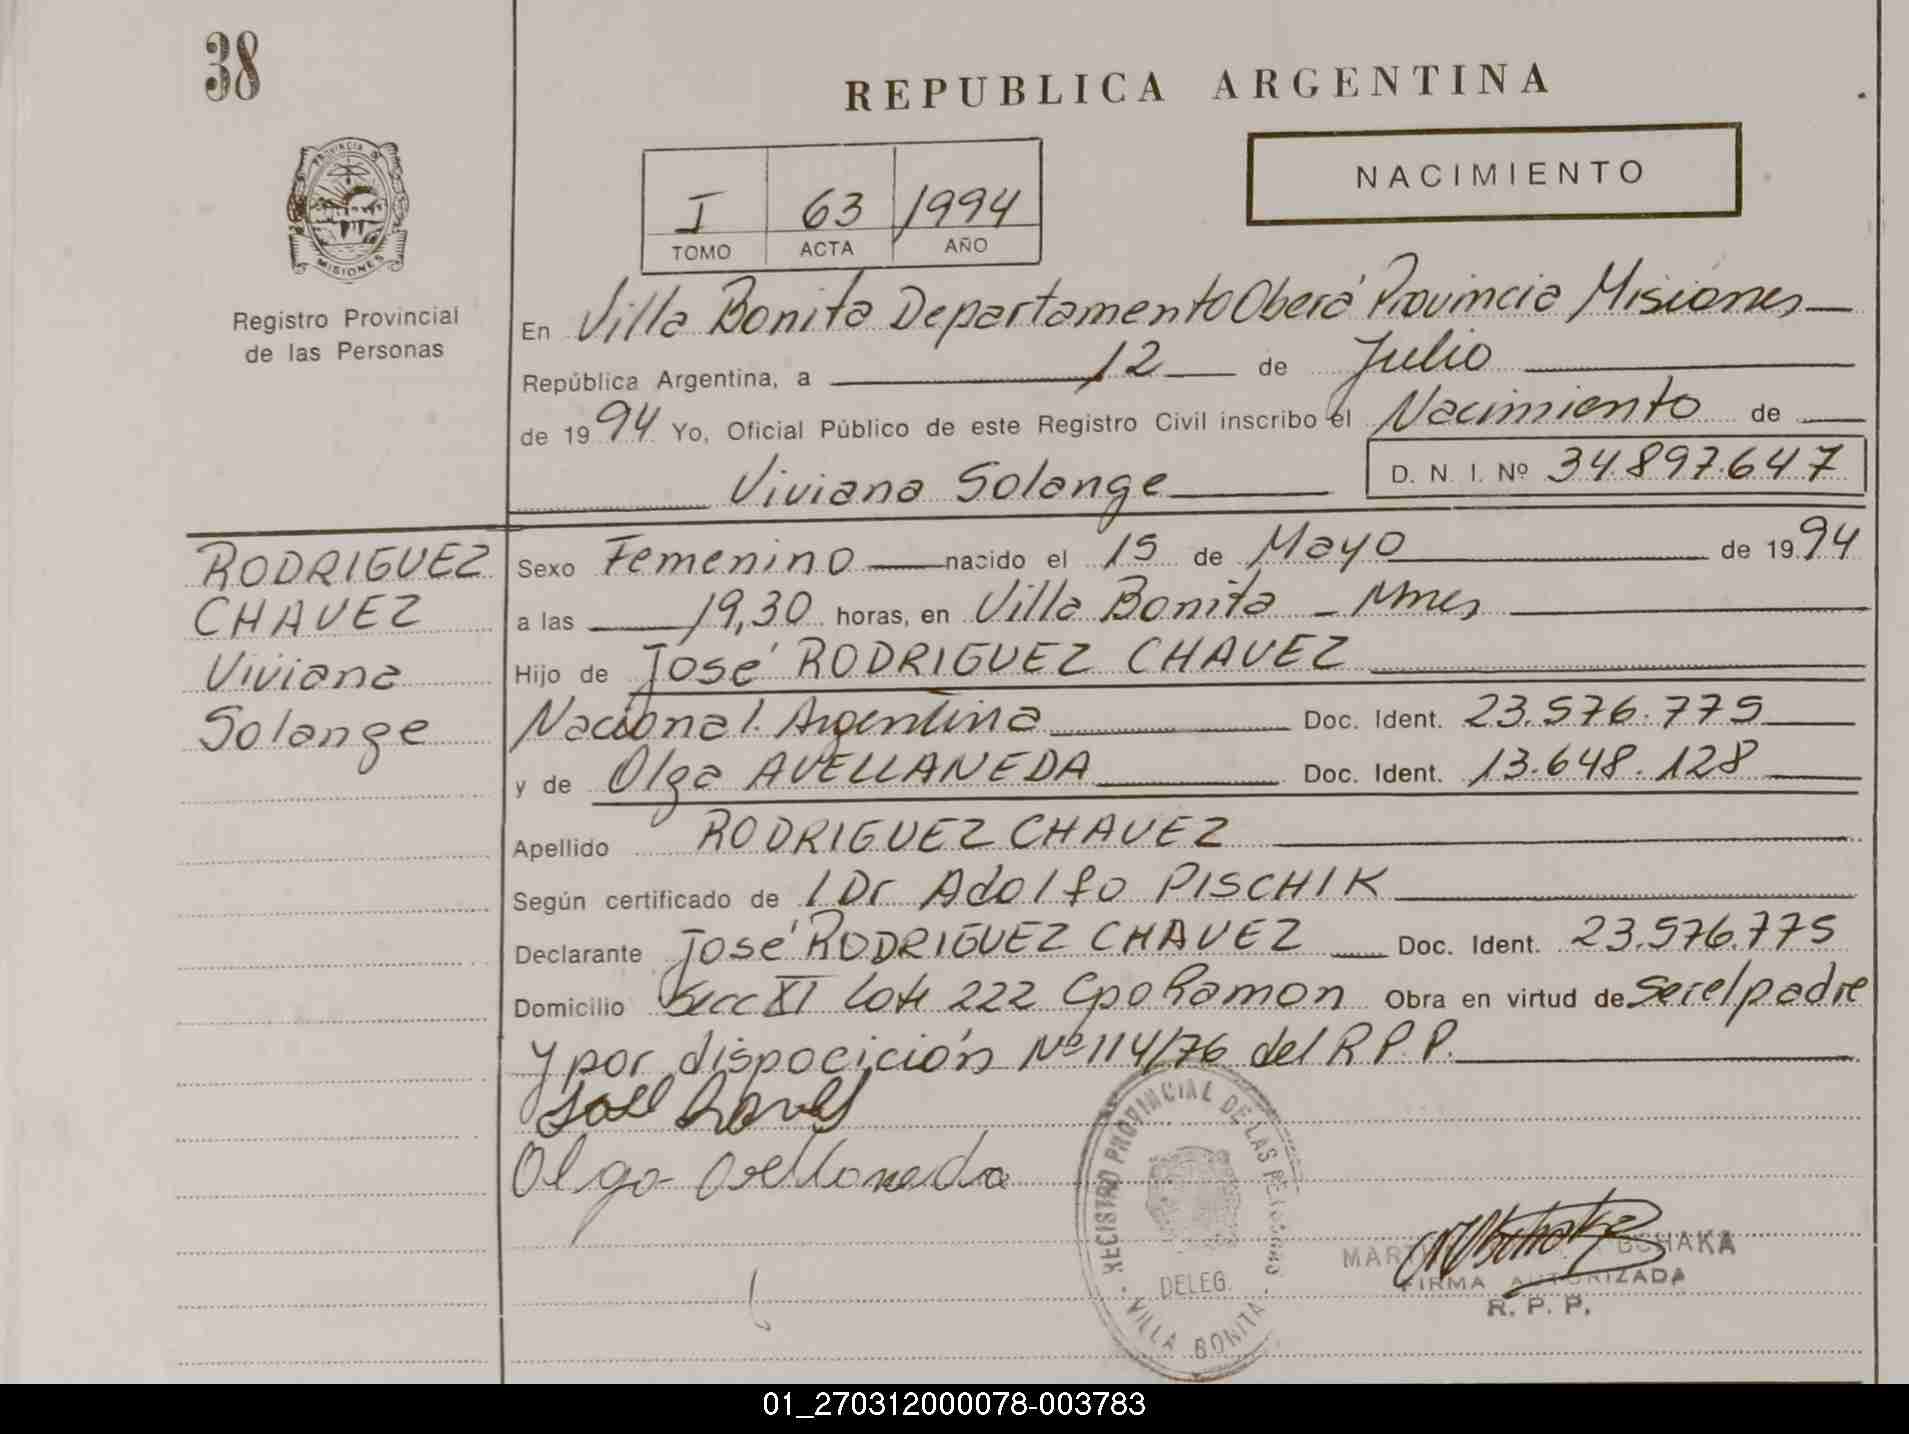 38
REPUBLICA ARGENTINA
PROVINCIA D
MISIONES
Registro Provincial
de las Personas
I 63 1994
TOMO ACTA AÑO
NACIMIENTO
En Villa Bonita Departamento Oberá Provincia Misiones
República Argentina, a 12 de Julio
de 1994 Yo, Oficial Público de este Registro Civil inscribo el Nacimiento de
Viviana Solange D. N. I. Nº 34.897.647
RODRIGUEZ
CHAVEZ
Viviana
Solange
Sexo Femenino nacido el 15 de Mayo de 1994
a las 19,30 horas, en Villa Bonita - Mnes
Hijo de José RODRIGUEZ CHAVEZ
Nacional. Argentina Doc. Ident. 23.576.775
y de Olga AVELLANEDA Doc. Ident. 13.648.128
Apellido RODRIGUEZ CHAVEZ
Según certificado de l Dr Adolfo PISCHIK
Declarante José RODRIGUEZ CHAVEZ Doc. Ident. 23.576.775
Domicilio Secc XI Lote 222 Cpo Ramon Obra en virtud de ser el padre
y por disposición Nº 114/76 del R.P.P.
Olga Avellaneda
REGISTRO PROVINCIAL DE LAS PERSONAS
DELEG.
VILLA BONITA
FIRMA AUTORIZADA
R. P. P.
01_270312000078-003783